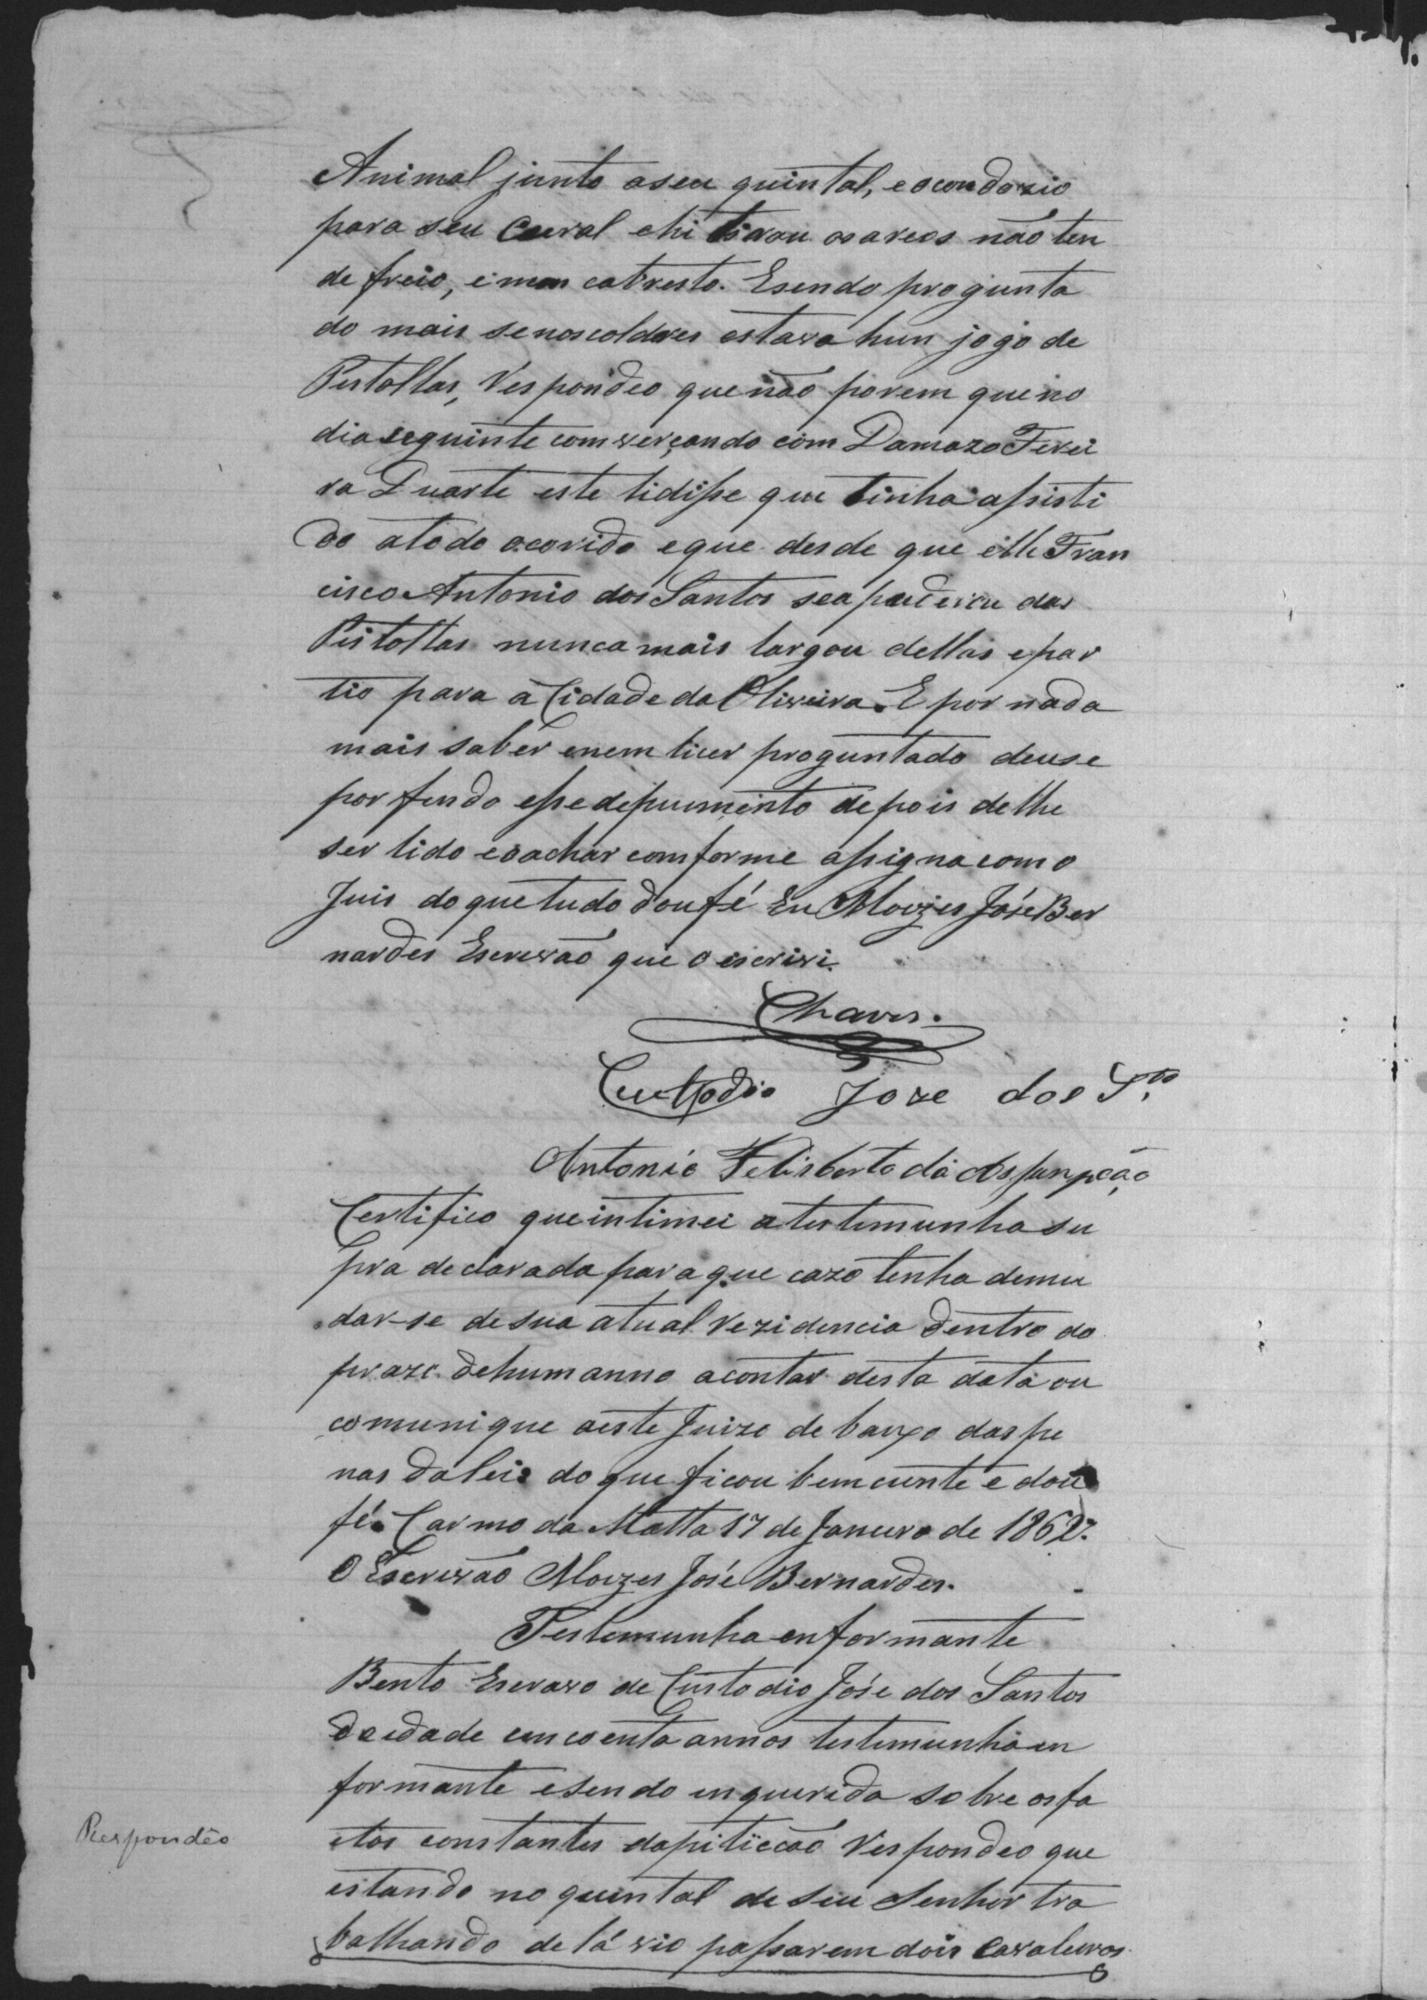 Animal junto aseu quintal, eocondozio
para seu Curral ehi tirou osareos não ten
de freio, enem cabresto. Esendo progunta
do mais senoscoldres estava hum jogo de
Pistollas, Respondeo quenão porem queno
diaseguinte comverçando com Damazo Ferei
ra Duarte este lidisse que tinha assisti
do atodo ocorido eque desde que elle Fran
cisco Antonio dos Santos seapuderou das
Pistollas nuncamais largou dellas epar
tio para a Cidade da Oliveira. E por nada
mais saber enem liser proguntado deuse
porfindo essedipuimento depois delhe
ser lido eoachar comforme assigna como
Juis doquetudo doufé Eu Moizes José Ber
nardes Escrivão que o escrivi.
Chaves.
Custodio Joze dos S.tos
Antonio Felisberto da Assumpção
Certifico queintimei atestemunha su
pra declarada paraque cazo tenha demu
dar-se desua atual rezidencia dentro do
prazo dehumanno acontar desta data ou
comunique aeste Juizo debaixo daspe
nas dalei: do que ficou bemciente e dou
fé. Carmo da Matta 17 de Janeiro de 1862.
O Escrivão Moizes José Bernardes.
Testemunha enformante
Bento Escravo de Custodio José dos Santos
deidade cincoenta annos testemunha en
formante esendo enquerida sobre osfa
ctos constantes dapitiecão Respondeo que
Respondêo
estando no quintal de seu Senhor tra
balhando delá vio passarem dois cavaleiros